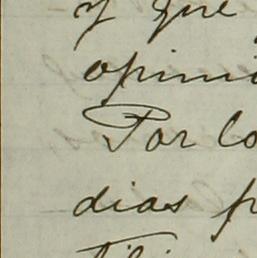 y que
opini
Por lo
dias p